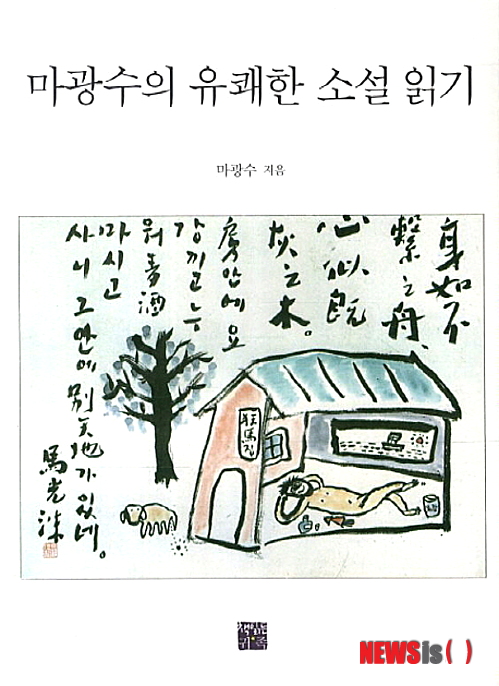 마광수의 유쾌한 소설 읽기
마광수 지음
身如不
繫之舟,
心似旣
灰之木。
房안에 요
강 끼고 누
워 酒
마시고
사니 그 안에 別天地가 있네。
馬光洙
狂馬집
책읽는귀족
NEWSis( )